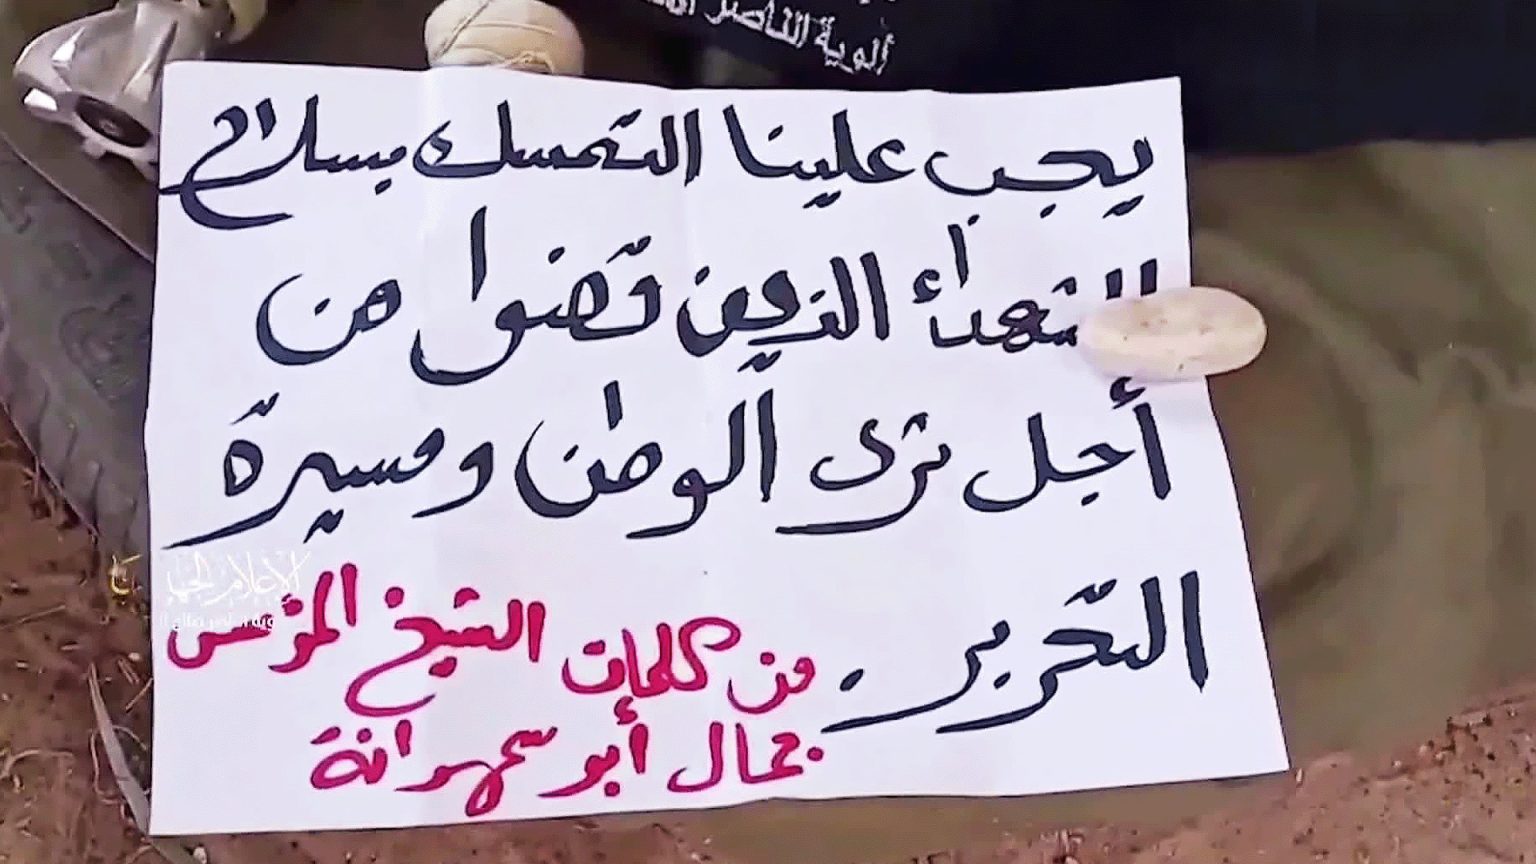 ألوية الناصر
يجب علينا التمسك بسلاح
الشهداء الذين قضوا من
أجل ثرى الوطن ومسيرة
التحرير.
من كلمات الشيخ المؤسس
جمال أبو سمهدانة
الإعلام الحربي